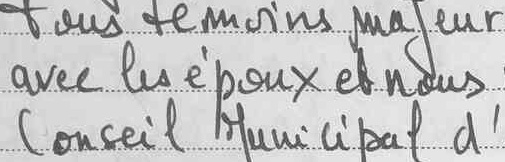 tous temoins majeur
avec les époux et nous
Conseil Municipal d'